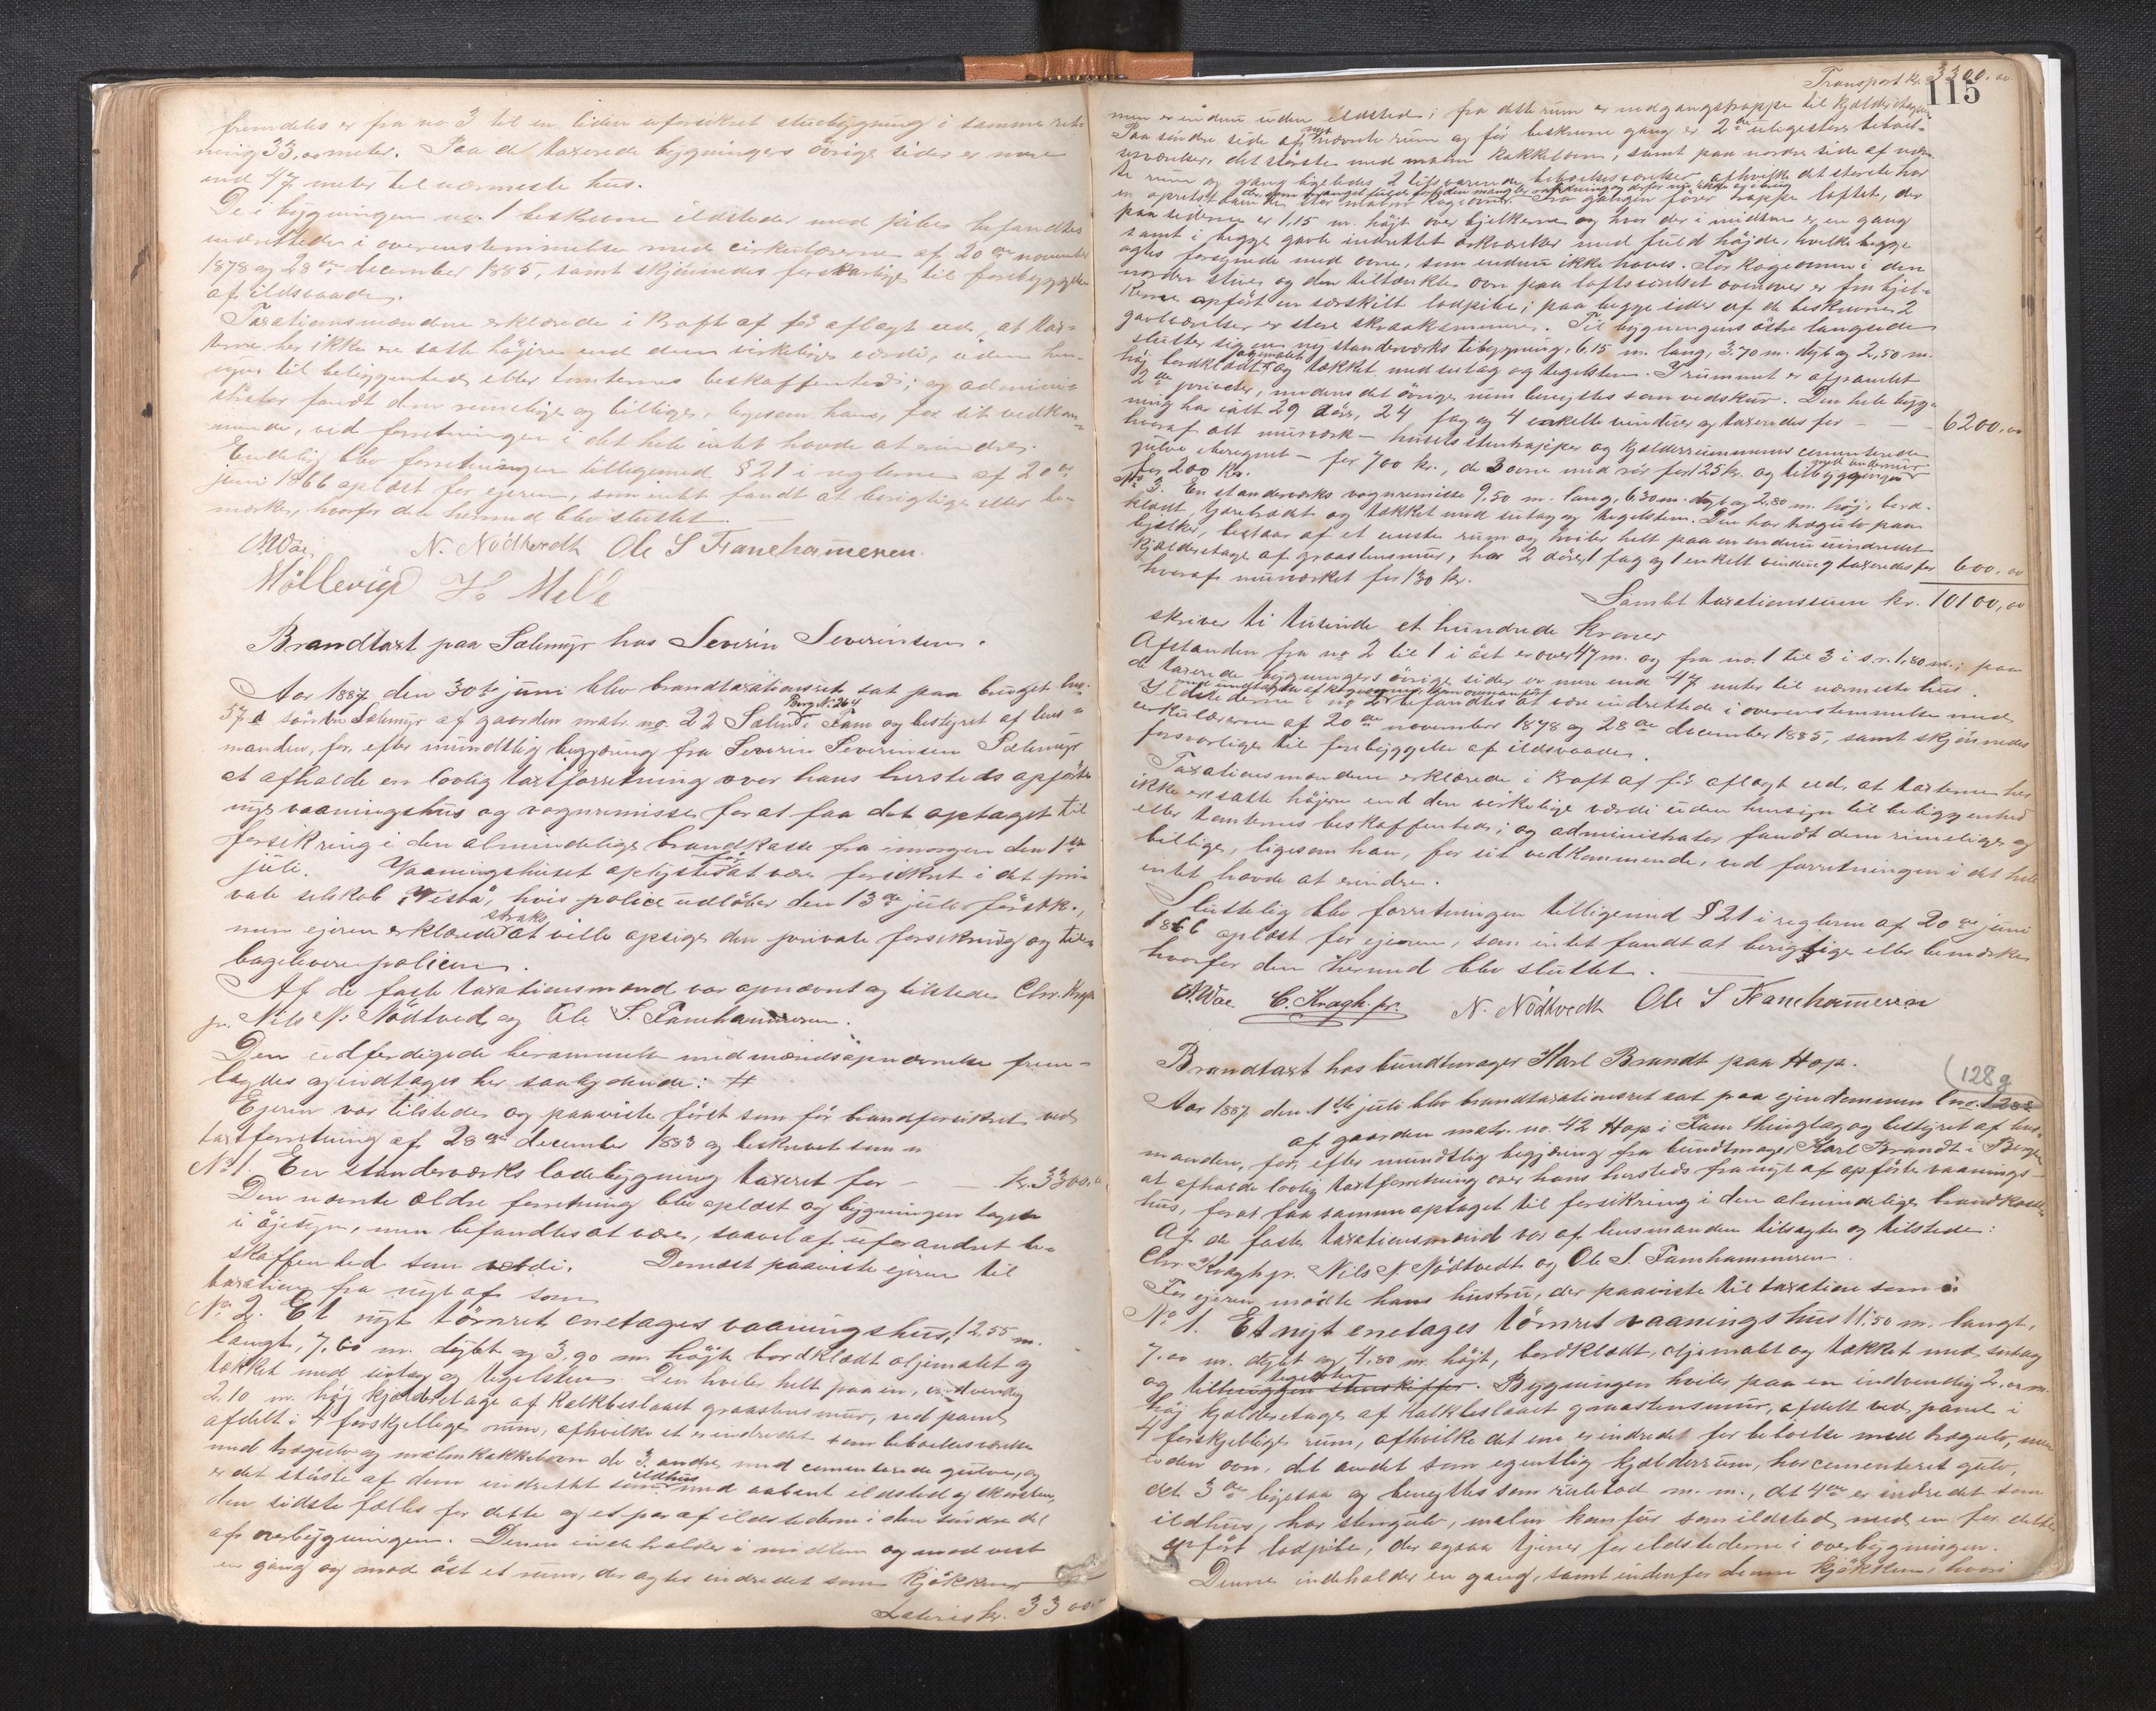 fremdeles er fra no 3 til en liden uforsikret stuebygning i samme ret-
ning 33,00 meter. Paa de taxerede bygningers övrige sider er mere
end 47 meter til nærmeste hus.
De i bygningen no. 1 beskrevne ildsteder med piber befandtes
indrettede i overensstemmelse med cirkulærerne af 20de november
1878 og 28de december 1885, samt skjönnedes forsvarlige til forebyggelse
af ildsvaade.
Taxationsmændene erklærede i kraft af för aflagt eed, at tax-
terne her ikke ere satte höiere end den virkelige værdi, uden hen-
syn til beliggenhed eller tomternes beskaffenhed; og admini-
strator fandt dem rimelige og billige, ligesom han, for sit vedkom-
mende, ved forretningen i det hele intet havde at erindre.
Endelig blev forretningen tilligemed § 21 i reglerne af 20de
juni 1866 oplæst for ejeren, som intet fandt at berigtige eller be-
mærke, hvorfor den hermed blev sluttet.
N. Nödtvedt Ole S Fanehammeren
H. Melle
Brandtaxt paa Sælemyr hos Severin Severinsen.
Aar 1887 den 30te juni blev brandtaxationsret sat paa bruget lno.
Brug No 264
57 d söndre Sælemyr af gaarden matr. no. 22 Sælen i Fane og bestyret af lens-
manden, for, efter mundtlig begjæring fra Severin Severinsen Sælemyr
at afholde en lovlig taxtforretning over hans hersteds opförte
nye vaaningshus og vognremisse for at faa det optaget til
forsikring i den almindelige brandkasse fra imorgen den 1ste
juli. Vaaningshuset oplystes for at være forsikret i det pri-
vate selskab "Vesta", hvis police udlöber den 13de juli förstk.,
straks
men ejeren erklærede at ville opsige den private forsikring og til-
bagelevere policen.
Af de faste taxationsmænd var opnævnt og tilstede Chr. Kragh
jr. Nils N. Nödtvedt og Ole S. Fanehammeren.
Den udferdigede berammelse med mandsopnævnelse frem-
lagdes og indtages her saalydende: #
Ejeren var tilstede og paaviste först som för brandforsikret ved
taxtforretning af 28de december 1883 og beskrevet som
No 1. En standerværks ladebygning taxeret for - - kr. 3300.00
Den nævnte ældre forretning blev oplæst og bygningen tagen
i öjesyn, men befandtes at være, saavel af uforandret be-
skaffenhed som værdi. Dernæst paaviste ejeren til
taxation fra nyt af som
No 2. Et nyt tömret enetages vaaningshus, 12.55 m.
langt, 7,00 m. dybt og 3.90 m. höjt bordklædt oljemalet og
tækket med sutag og tegelsten. Den hviler helt paa en, indvendig
2.10 m. höj kjælderetage af kalkbeslaaet graastensmur, ved panel
afdelt i 4 forskjellige rum, afhvilke et er indredet som beboelsesværelse
med trægulv og malmkakkelovn de 3 andre med cementerede gulve, og
ildhus
er det störste af dem indrettet som med aabent ildsted og skorsten,
den sidste fælles for dette og et par af ildstederne i den söndre del
af overbygningen. Denne indeholder i midten og mod vest
en gang og mod öst et rum, der agtes indredet som kjökken
Lateris kr. 3300.-
Transport kr. 3300.00
115
men er endnu uden ildsted; fra dette rum er nedgangstrappe til kjælderetagen.
Paa söndre side af nævnte rum og för beskrevne gang er 2de uligestore beboel-
sesværelser, det störste med malm kakkelovn, samt paa nordre side af nævn-
te rum og gang ligeledes 2 tilsvarende beboelsesværelser afhvilke det störste har
en opretstaaende stor malm kogeovn. Fra gangen förer trappe loftet, der
paa siderne er 1.15 m. höjt over bjelkerne og hvor der i midten er en gang
samt i begge gavle indrettet værelser med fuld höjde, hvilke begge
agtes forsynede med ovne, som endnu ikke haves. For kogeovnen i den
nordre stue og den tiltænkte ovn paa loftsværelset ovenover er fra bjel-
kerne opfört en særskilt ladpibe; paa begge sider af de beskrevne 2
gavlværelser er store skraakammere. Til bygningens östre langside
slutter sig en ny standerværks tilbygning, 6.15 m. lang, 3.70 m. dyb og 2,50 m.
höj bordklædt og tækket med sutag og tegelsten. I rummet er afpanelet
2de priveter, medens det övrige rum benyttes som vedskur. Den hele byg-
ning har ialt 29 döre, 24 fag og 4 enkelte vinduer og taxeredes for - - - 6200,00
hveraf alt murværk - husets stentrapper og kjælderrummenes cementerede
gulve iberegnet - for 700 kr., de 3 ovne med rör for 125 kr. og tilbygningen
for 200 kr.
No 3. En standerværks vognremisse 9.50 m. lang, 6.30 m. dyb og 2.80 m. höj, bord-
klædt, tjærebrædt og tækket med sutag og tegelsten. Den har trægulv paa
bjelker, bestaar af et eneste rum og hviler helt paa en endnu uindredet
kjælderetage af graastensmur, har 2 döre, 1 fag og 1 enkelt vindu og taxeredes for 600.00
hveraf murværket for 130 kr.
Samlet taxationssum kr. 10100,00
skriver ti tusinde et hundrede kroner
Afstanden fra no 2 til 1 i öst er over 47 m. og fra no. 1 til 3 i s.v. 1.80 m.; paa
de taxerede bygningers övrige sider er mere end 47 meter til nærmeste hus.
Ildstederne i no 2 befandtes at være indrettede i overensstemmelse med
cirkulærerne af 20de november 1878 og 28de december 1885, samt skjönnedes
forsvarlige til forebyggelse af ildsvaade.
Taxationsmændene erklærede i kraft af för aflagt eed, at taxterne her
ikke ere satte höjere end den virkelige værdi uden hensyn til beliggenhed
eller tomternes beskaffenhed; og administrator fandt dem rimelige og
billige, ligesom han, for sit vedkommende, ved forretningen i det hele
intet havde at erindre.
Sluttelig blev forretningen tilligemed § 21 i reglerne af 20de juni
1866 oplæst for ejeren, som intet fandt at berigtige eller bemærke
hvorfor den hermed blev sluttet.
C. Kragh jr. N. Nödtvedt Ole S Fanehammeren
Brandtaxt hos bundtmager Karl Brandt paa Hop.
(128g
Aar 1887 den 1ste juli blev brandtaxationsret sat paa ejendommen lno. 128
af gaarden matr. no. 42 Hop i Fane thinglag og bestyret af lens-
manden, for, efter mundtlig begjæring fra bundtmager Karl Brandt i Bergen
at afholde lovlig taxtforretning over hans hersteds fra nyt af opförte vaanings-
hus, for at faa samme optaget til forsikring i den almindelige brandkasse.
Af de faste taxationsmænd var af lensmanden tilsagte og tilstede:
Chr. Kragh jr. Nils N. Nödtvedt og Ole S. Fanehammeren
For ejeren mödte hans hustru, der paaviste til taxation som
No 1. Et nyt enetages tömret vaaningshus 11.50 m. langt,
7.00 m. dybt og 4.80 m. höjt, bordklædt, oljemalet og tækket med sutag
tegelsten
og skifer. Bygningen hviler paa en indvendig 2.00 m.
höj kjælderetage af kalkbeslaaet graastensmur, afdelt ved panel i
4 forskjellige rum, afhvilke det ene er indredet for beboelse med trægulv, men
uden ovn, det andet som egentlig kjælderrum, har cementeret gulv,
det 3de ligesaa og benyttes som rulebod m. m., det 4de er indredet som
ildhus, har stengulv, malm komfür som ildsted, med en for dette
opfört ladpibe, der ogsaa tjener for ildstederne i overbygningen.
Denne indeholder en gang, samt indenfor denne kjökken, hvori